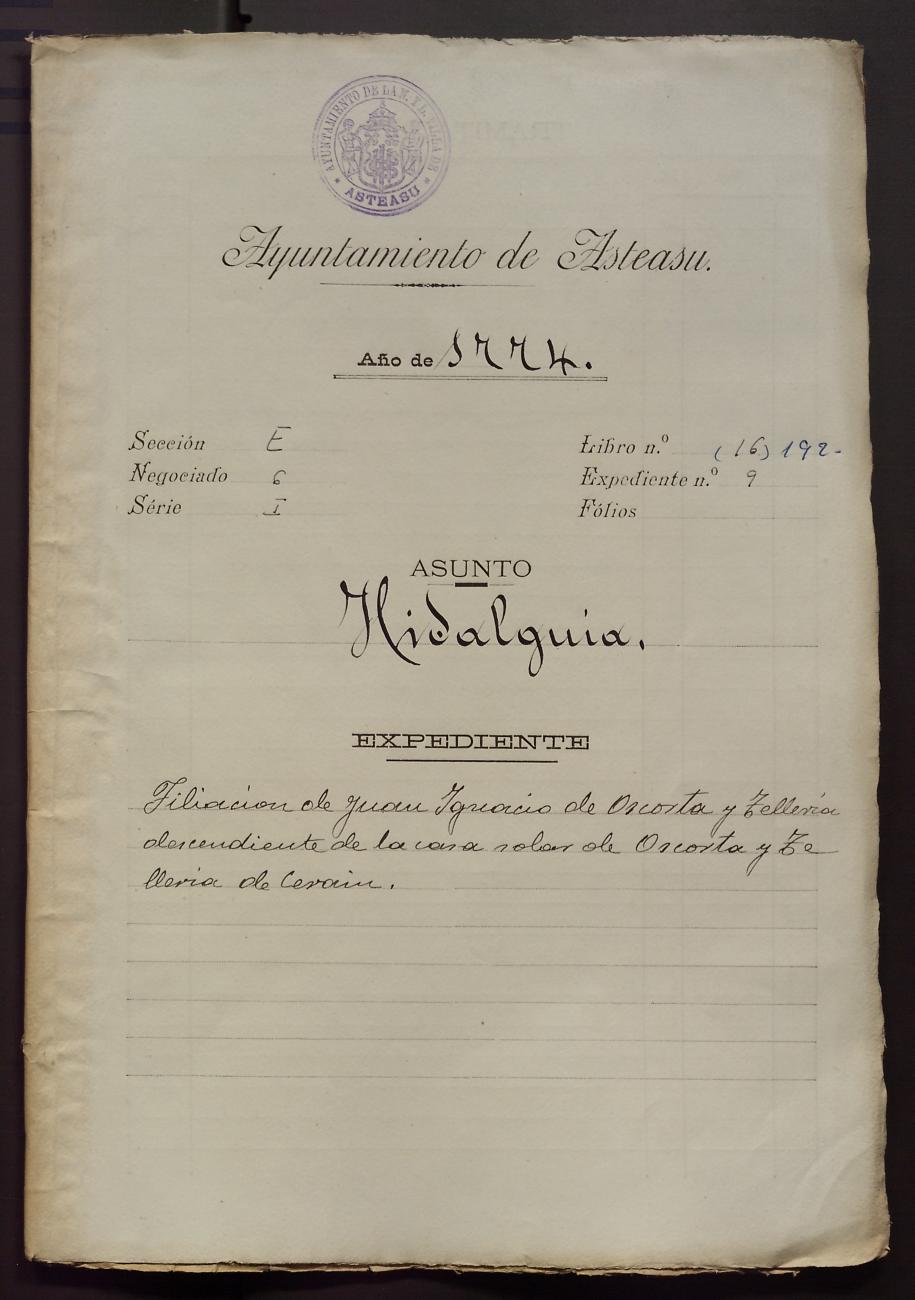 AYUNTAMIENTO DE LA N. Y L. VILLA DE
* ASTEASU *
Ayuntamiento de Asteasu.
Año de 1774.
Sección E
Negociado 6
Série I
Libro n.º (16) 192-
Expediente n.º 9
Fólios
ASUNTO
Hidalguia.
EXPEDIENTE
Filiacion de Juan Ignacio de Oscosta y Zelleria
descendiente de la casa solar de Oscorta y Ze
lleria de Cerain.